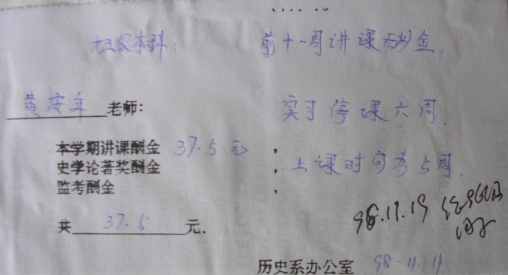 大三本科: 前十一周讲课酬金,
黄安年 老师: 实习停课六周,
本学期讲课酬金 37.5元,
史学论著奖酬金, 上课时间为5周,
监考酬金,
98.11.19
共 37.5 元.
历史系办公室 98.11.11